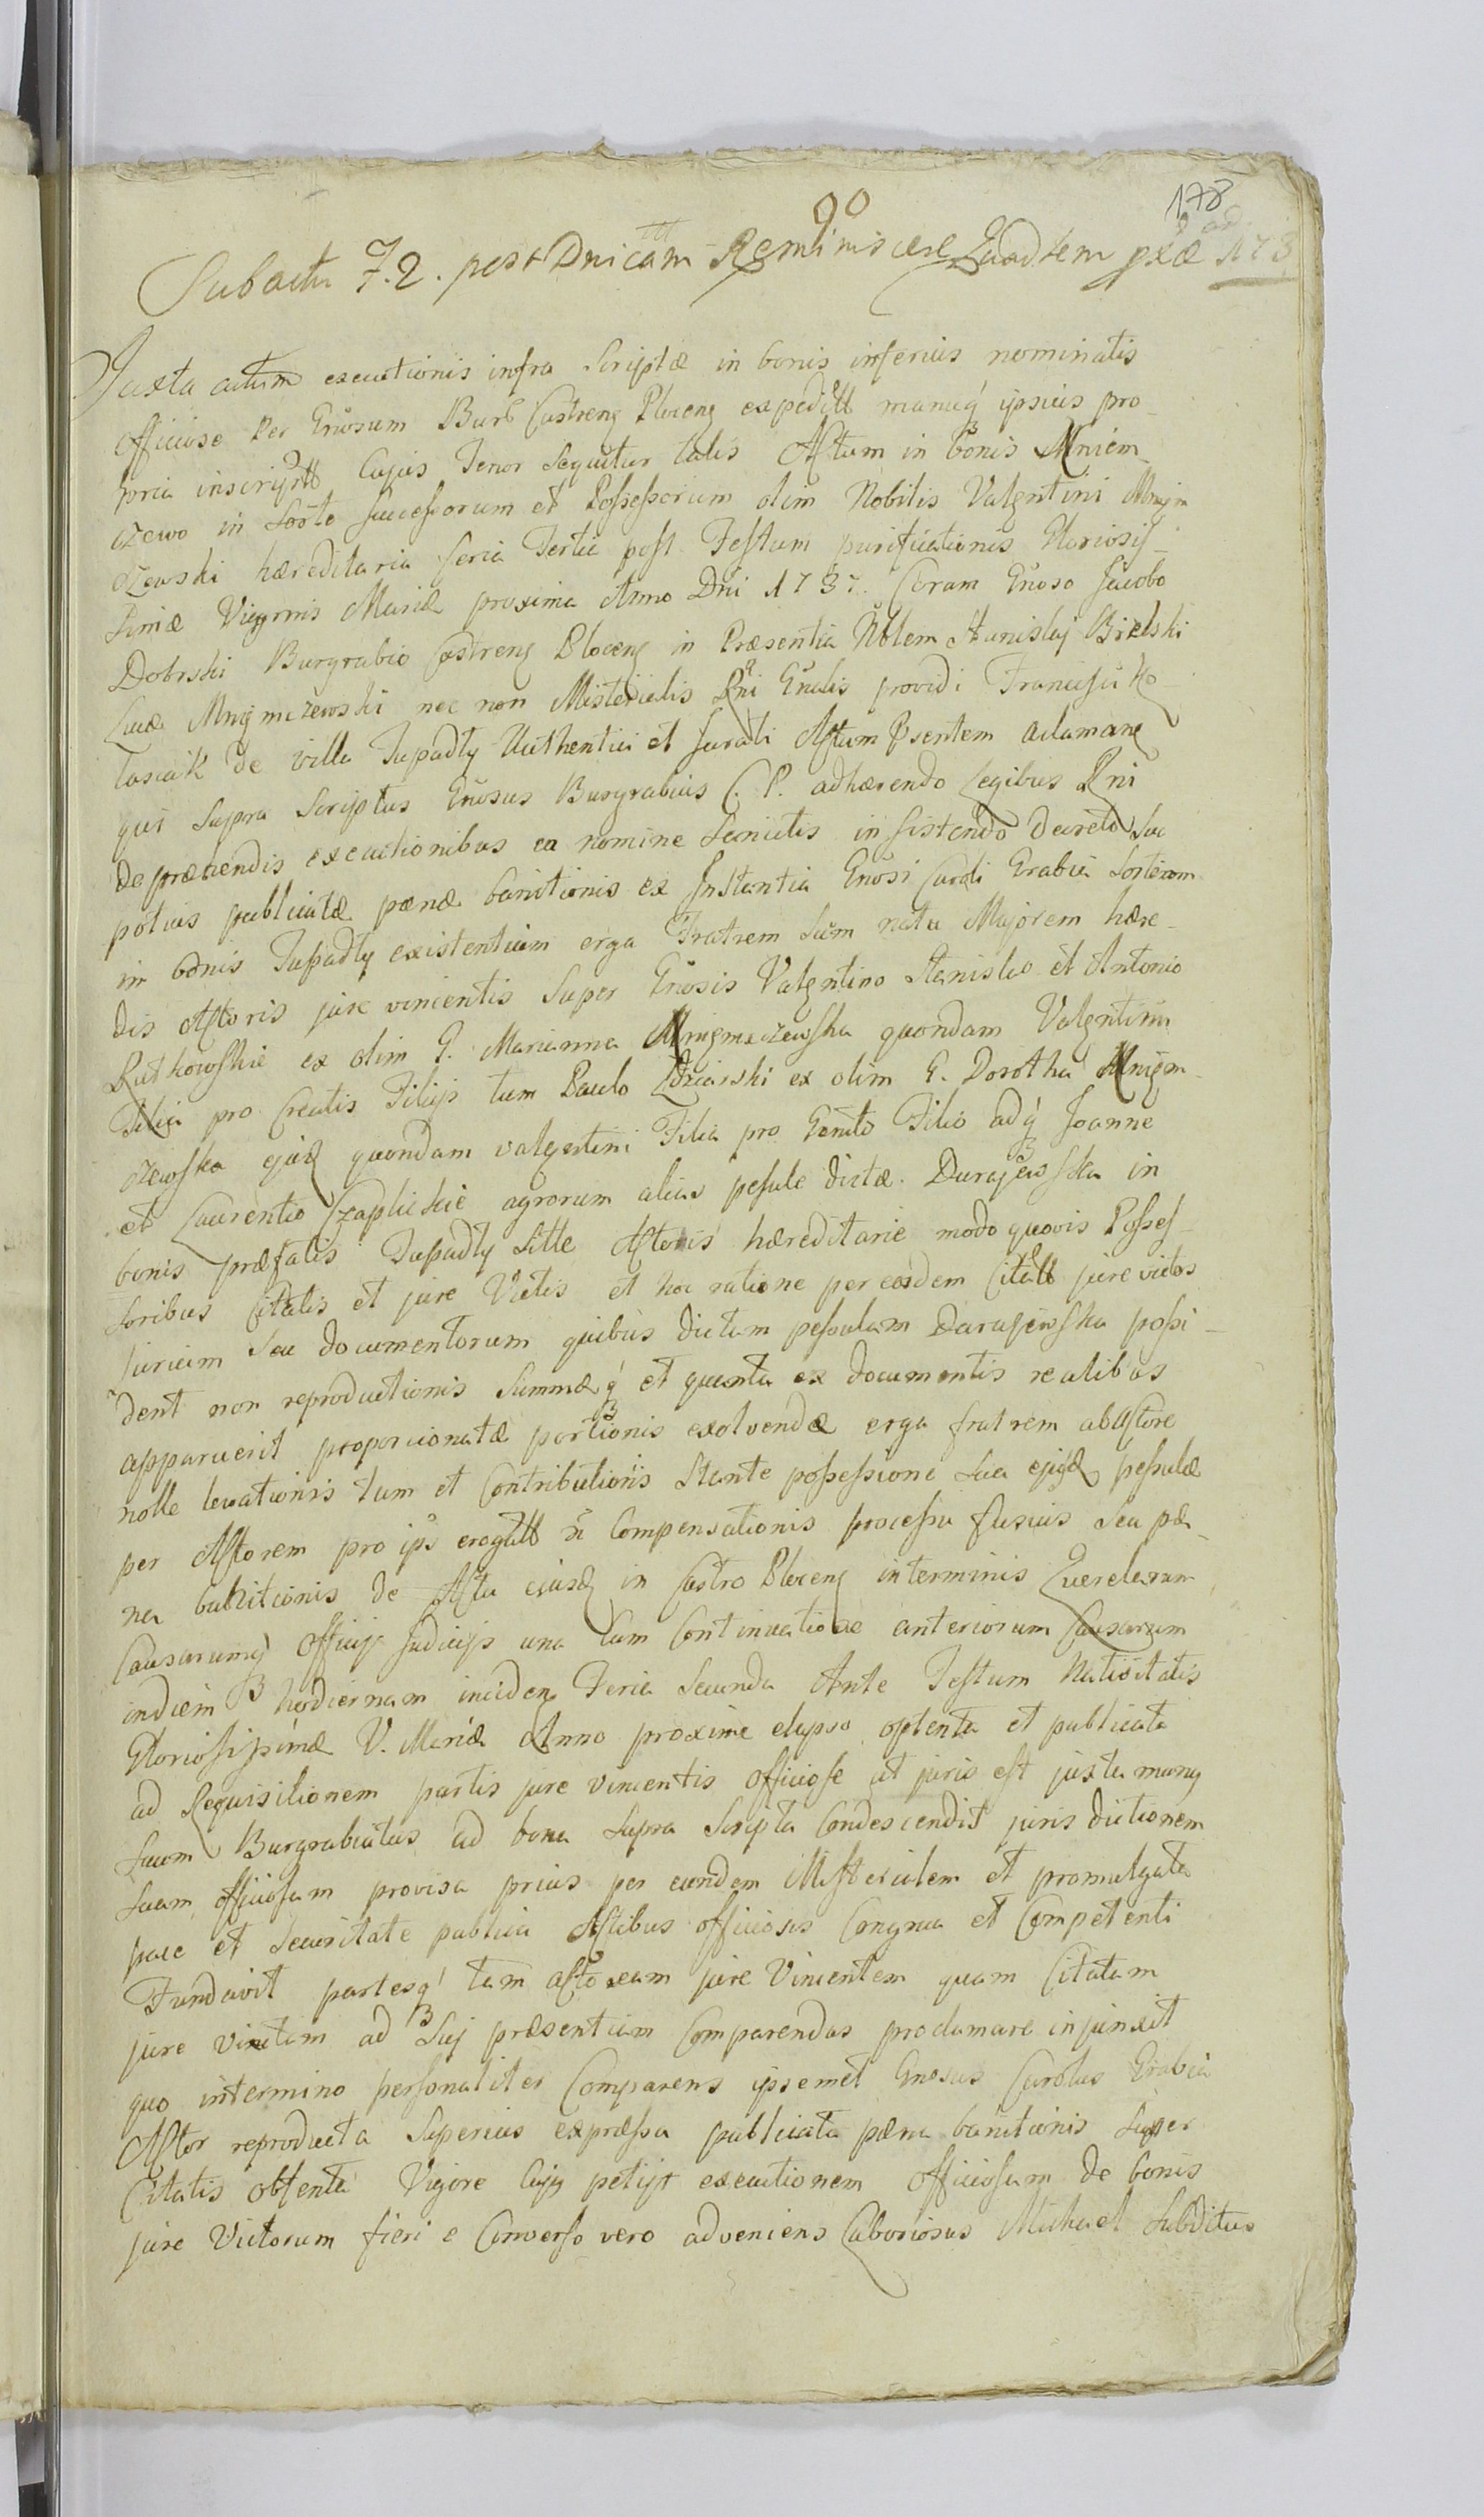 90
178
Sub actu F. 2. post Dnicam Reminiscere Quad pxæ 173
Juxta actum executionis infra Scriptæ in bonis inferius nominatis
officiose Per Gnosum Burb Castreng Ploceng expeditt manuq ipsius pro_
pria inscriptt Cujus Tenor Sequitur talis Actum in bonis Mniem_
czewo in Sorte Successorum et Possessorum olim Nobilis Valentini Mnijm
czewski hæreditaria feria Tertia post Festum purificationis Gloriosis_
simæ Virginis Mariæ proxima Anno Dni 1737. Coram Gnoso Jacobo
Dobrski Burgrabio Castreng Ploceng in Præsentia Noblem Stanislaj Bielski
Lucæ Mnijmczewski nec non Misterialis Rni Gnalis providi Francisci Ko_
tasiak de villa Jupadły Authentici et Jurati Actum Psentem aclamang
qui Supra Scriptus Gnosus Burgrabius C. P. adhærendo Legibus Rni
de præviendis executionibus ea nomine Sancitis insistendo Decreto Sac
potius publicatæ pœnæ banitionis ex Instantia Gnosi Caroli Grabia Sortium
in bonis Jupadły existentium erga Fratrem Suum natu Majorem hære_
dis Actoris jure vincentis Super Gnosis Valentino Stanislao et Antonio
Rutkowskie ex olim G. Marianna Mnijmczewska quondam Valentini
Filia pro Creatis Filijs tum Paulo Zdziarski ex olim G. Dorotha Mnijm_
czewska ejusd quondam valentini Filia pro Genito Filio adq Joanne
et Laurentio Czaplickie agrorum alias pesule dictæ Durajewska in
bonis præfatis Jupadły Sitte Actoris hæreditarie modo quovis Posses_
soribus Citatis et jure Victis et hoc ratione per eosdem Citatt jure victos
jurium Seu documentorum quibus dictam pessulam Durajewska possi_
dent non reproductionis Summæq et quanta ex documentis realibus
apparuerit proporcionatæ portionis exolvendæ erga fratrem ab Actore
nolle levationis tum et Contributionis Stante possessione Sua ejusd pessulæ
per Actorem pro ips erogatt n Compensationis processu fusius Seu pæ_
na banitionis de Actu ejusd in Castro Ploceng in terminis Querelarum
Causarumq Officij Judicijs una Cum Continuatione anteriorum Causarum
in diem hodiernam inciden Feria Secunda Ante Festum Nativitatis
Gloriosissimæ V. Mariæ Anno proxime elapso optenta et publicata
ad Requisitionem partis jure vincentis officiose ut juris est juxta munq
Suum Burgrabiatus ad bona Supra Scripta Condescendit juris dictionem
Suam officiosam provisa prius per eundem Misterialem et promulgata
pace et Securitate publica Actibus officiosis Congrua et Competenti
Fundavit partesq tam actoream jure Vincentem quam Citatam
jure victam ad Suj præsentiam Comparendas proclamare injunxit
quo in termino personaliter Comparens ipsemet Gnosus Carolus Grabia
Actor reproducta Superius expressa publicata pæna banitionis Super
Citatis obtenta Vigore Cujq petijt executionem officiosam de bonis
jure Victorum fieri e Converso vero adveniens Laboriosus Michael Subditus